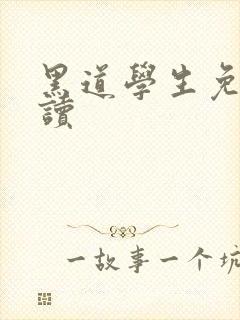 黑道學生免
讀
一故事一个坑